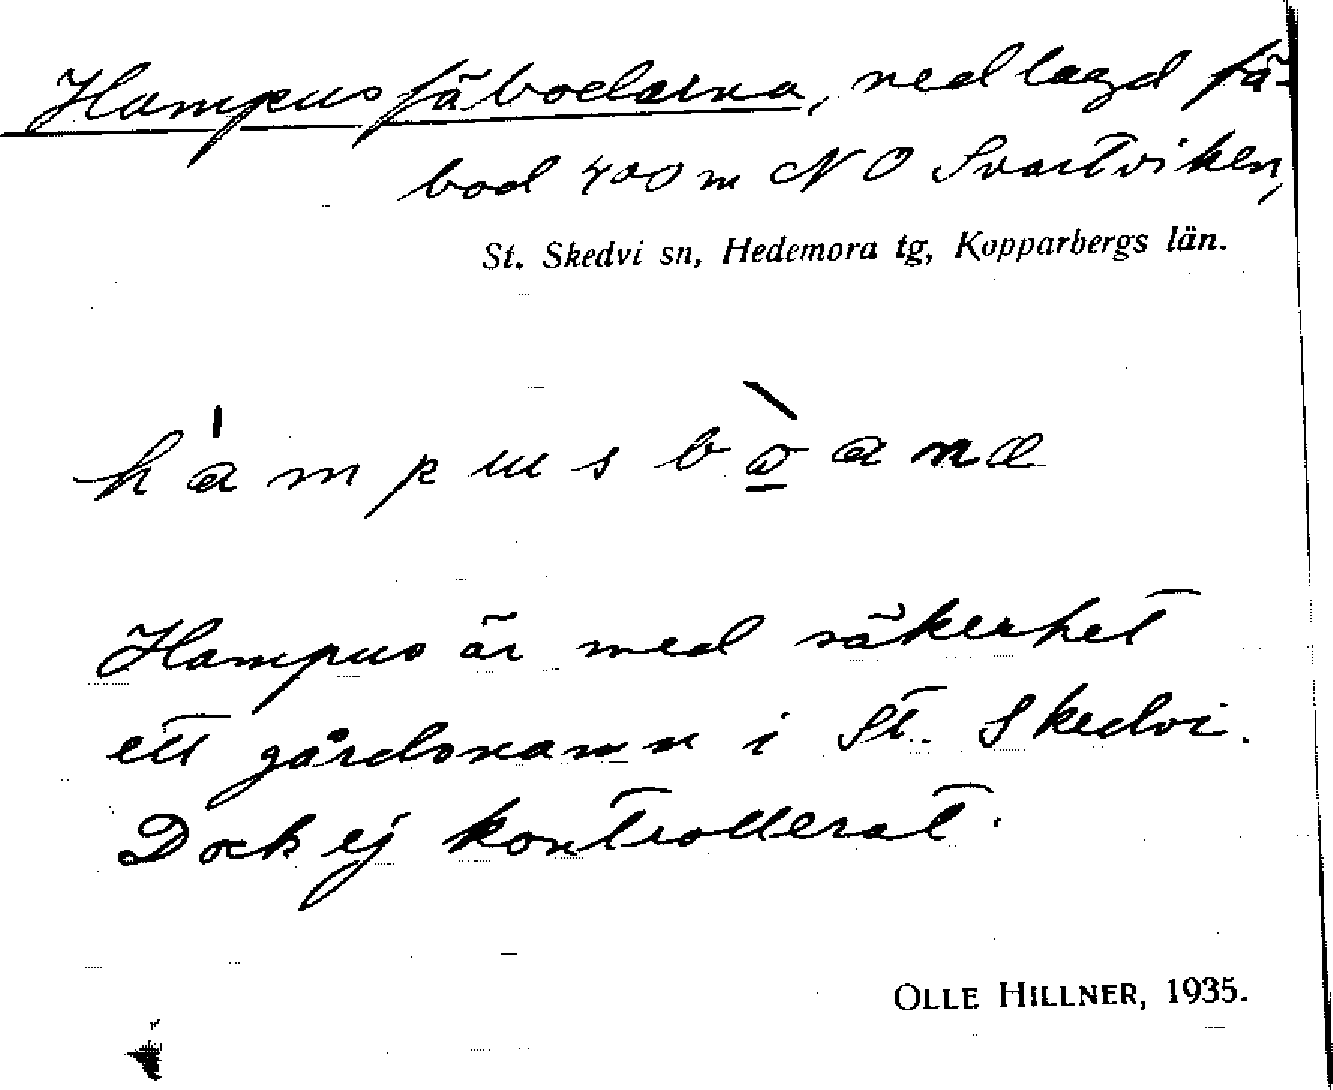 Hampusfäbodarna, nedlagd fä-
bod 400 m NO Svartviken,
St. Skedvi sn, Hedemora tg, Kopparbergs län.
Hampus är med säkerhet
ett gårdsnamn i St. Skedvi.
Dock ej kontrollerat.
OLLE HILLNER, 1935.